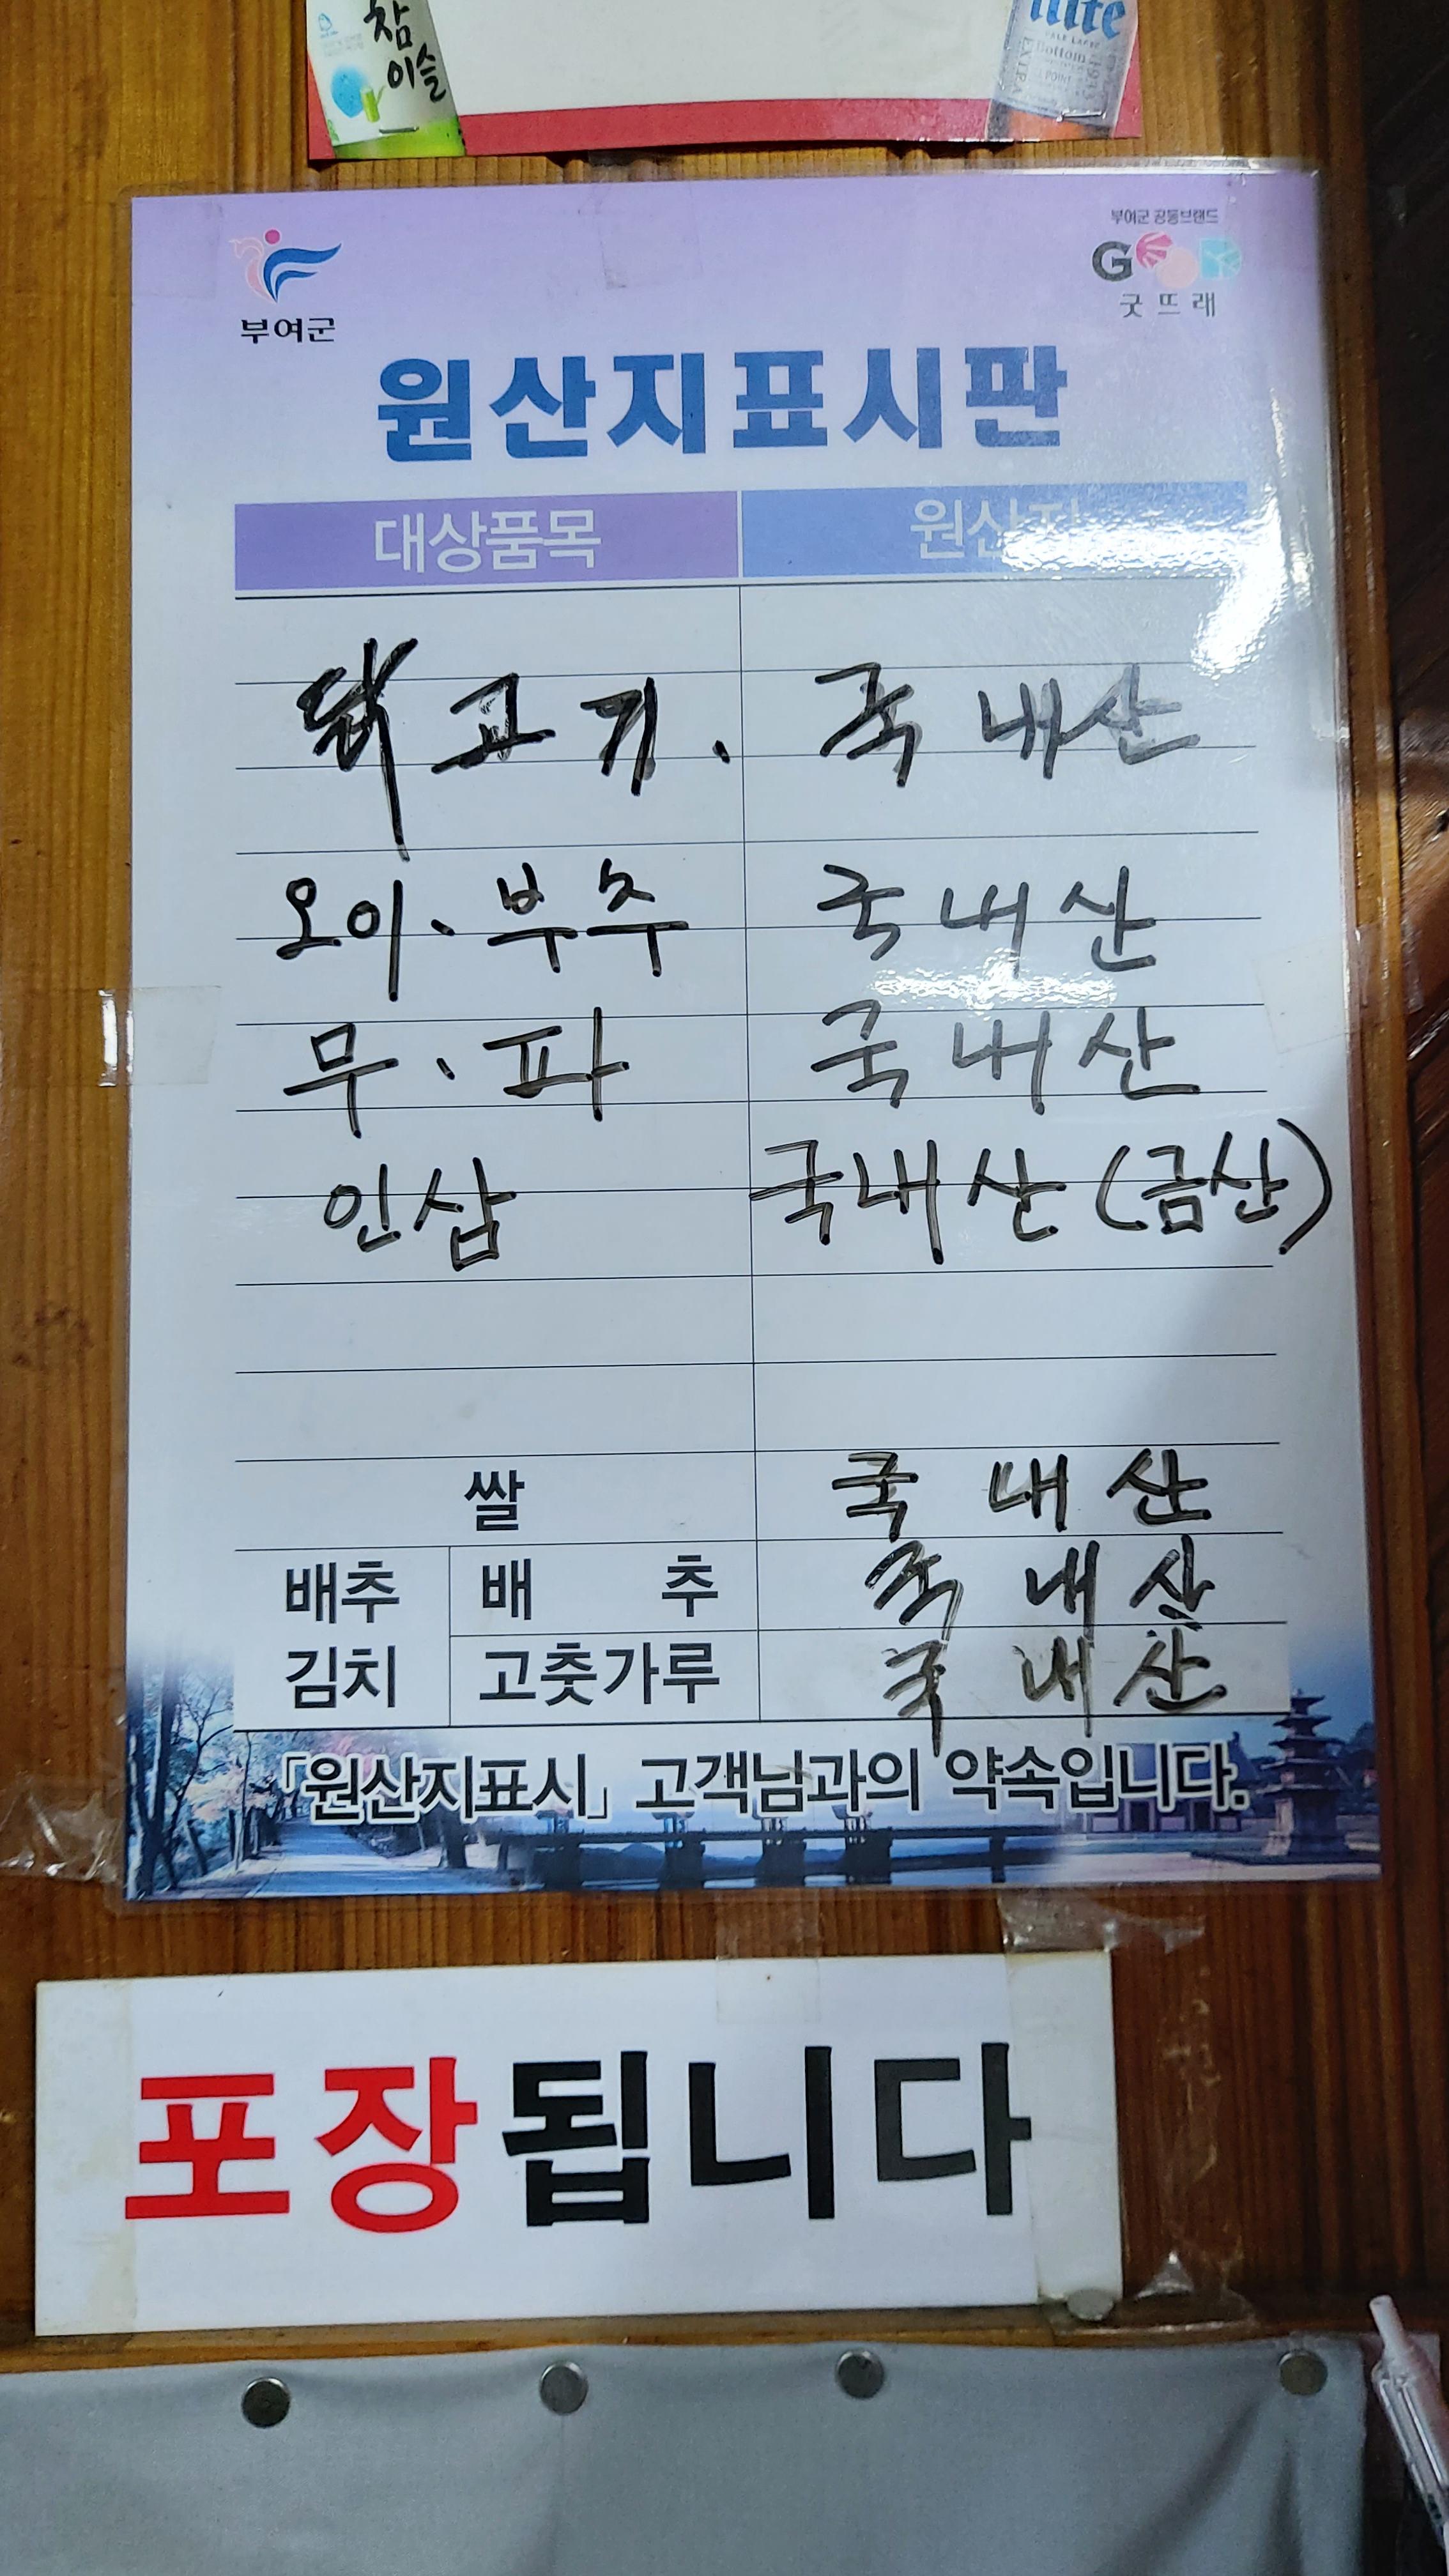 참
이슬
lite
EXTRA
부여군 공동브랜드
GOOD
굿뜨래
부여군
원산지표시판
대상품목 원산지
고기. 국내산
오이、부추 국내산
무、파 국내산
인삼 국내산(금산)
쌀 국내산
배추 배 추 국내산
김치 고춧가루 국내산
「원산지표시」 고객님과의 약속입니다.
포장됩니다